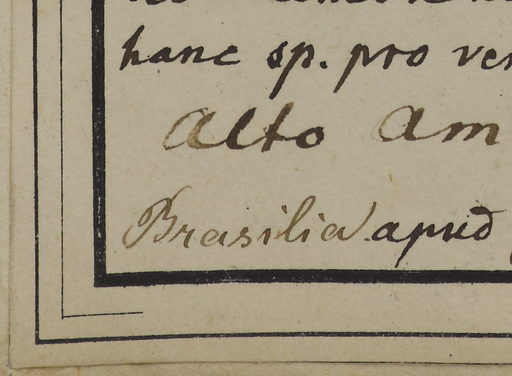 hanc sp. pro ver
Alto Am
Brasilia apud